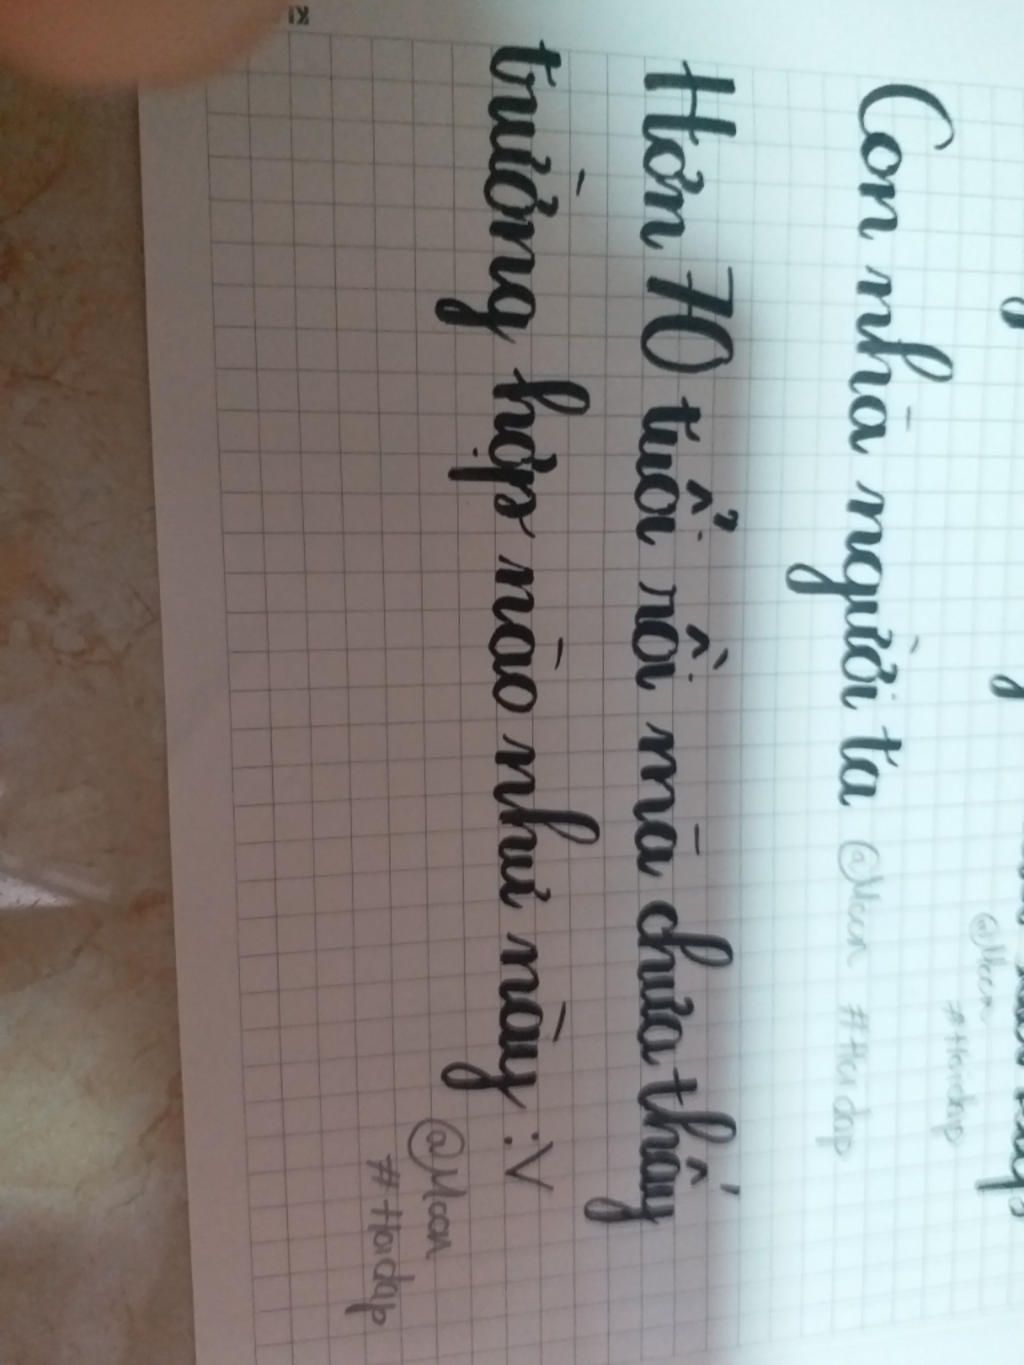 Con nhà người ta @Moon #Hoidap
Hơn 70 tuổi rồi mà chưa thấy
trường hợp nào như này :V
@Moon
#Hoidap
@Moon
#Hoidap